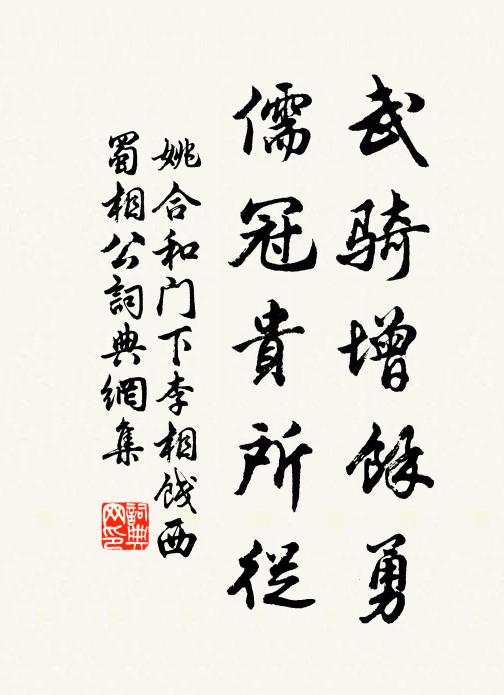 武骑增馀勇
儒冠貴所從
姚合和门下李相饯西
蜀相公詞典網集
詞典
网印